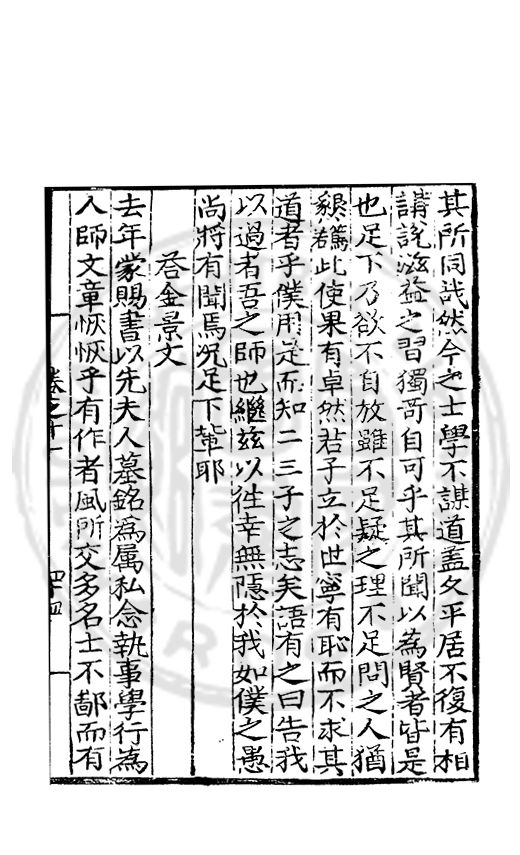 其所同哉然今之士學不謀道蓋久平居不復有相
講說滋益之習獨奇自可乎其所聞以為賢者皆是
也足下乃欲不自放雖不足疑之理不足問之人猶
懇懇此使果有卓然君子立於世寧有恥而不求其
道者乎僕用是而知二三子之志矣語有之曰告我
以過者吾之師也繼兹以往幸無隱於我如僕之愚
尚將有聞焉況足下輩耶
荅金景文
去年蒙賜書以先夫人墓銘為属私念執事學行為
人師文章恢恢乎有作者風所交多名士不鄙而有
卷之十一
四十四